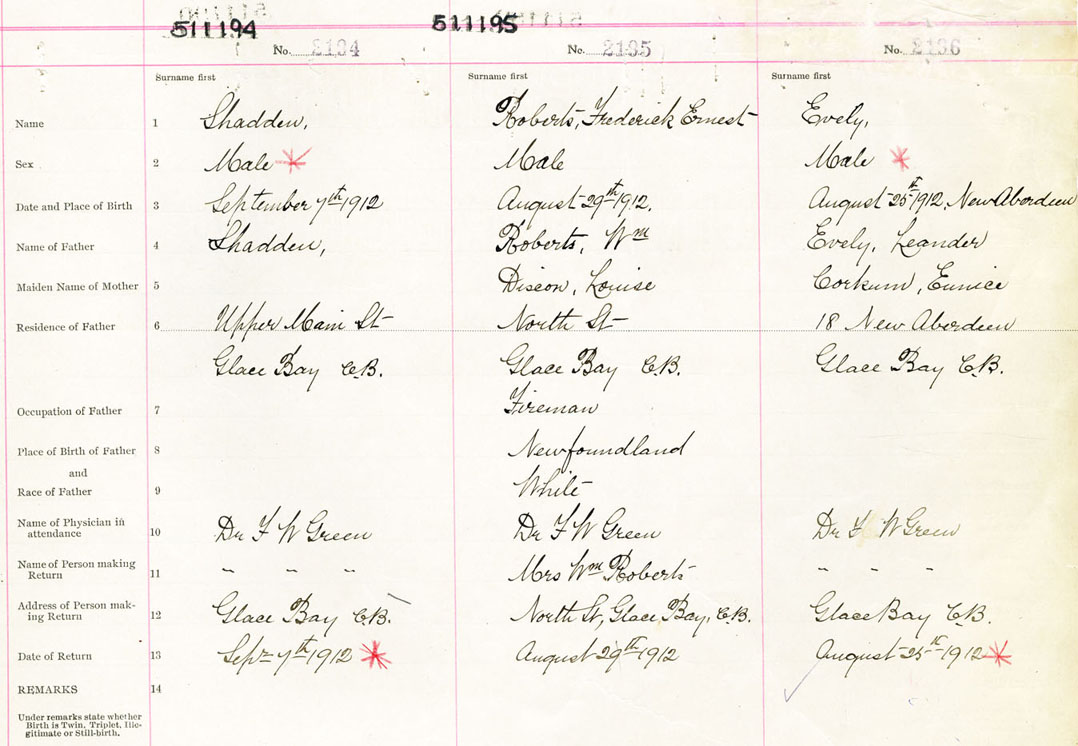 511194 511195
No. 2134 No. 2135 No. 2136
Surname first Surname first Surname first
Name 1 Shadden, Roberts, Frederick Ernest Evely,
Sex 2 Male Male Male
Date and Place of Birth 3 September 7th 1912 August 29th 1912. August 25th 1912, New Aberdeen
Name of Father 4 Shadden, Roberts, Wm Evely, Leander
Maiden Name of Mother 5 Diseon, Louise Corkum, Eunice
Residence of Father 6 Upper Main St North St 18 New Aberdeen
Glace Bay C.B. Glace Bay C.B. Glace Bay C.B.
Occupation of Father 7 Fireman
Place of Birth of Father 8 Newfoundland
and
Race of Father 9 White
Name of Physician in
attendance 10 Dr F W Green Dr F W Green Dr F W Green
Name of Person making
Return 11 " " " Mrs Wm Roberts " " "
Address of Person mak-
ing Return 12 Glace Bay C.B. North St, Glace Bay, C.B. Glace Bay C.B.
Date of Return 13 Sept 7th 1912 August 29th 1912 August 25th 1912
REMARKS 14
Under remarks state whether
Birth is Twin, Triplet, Ille-
gitimate or Still-birth.